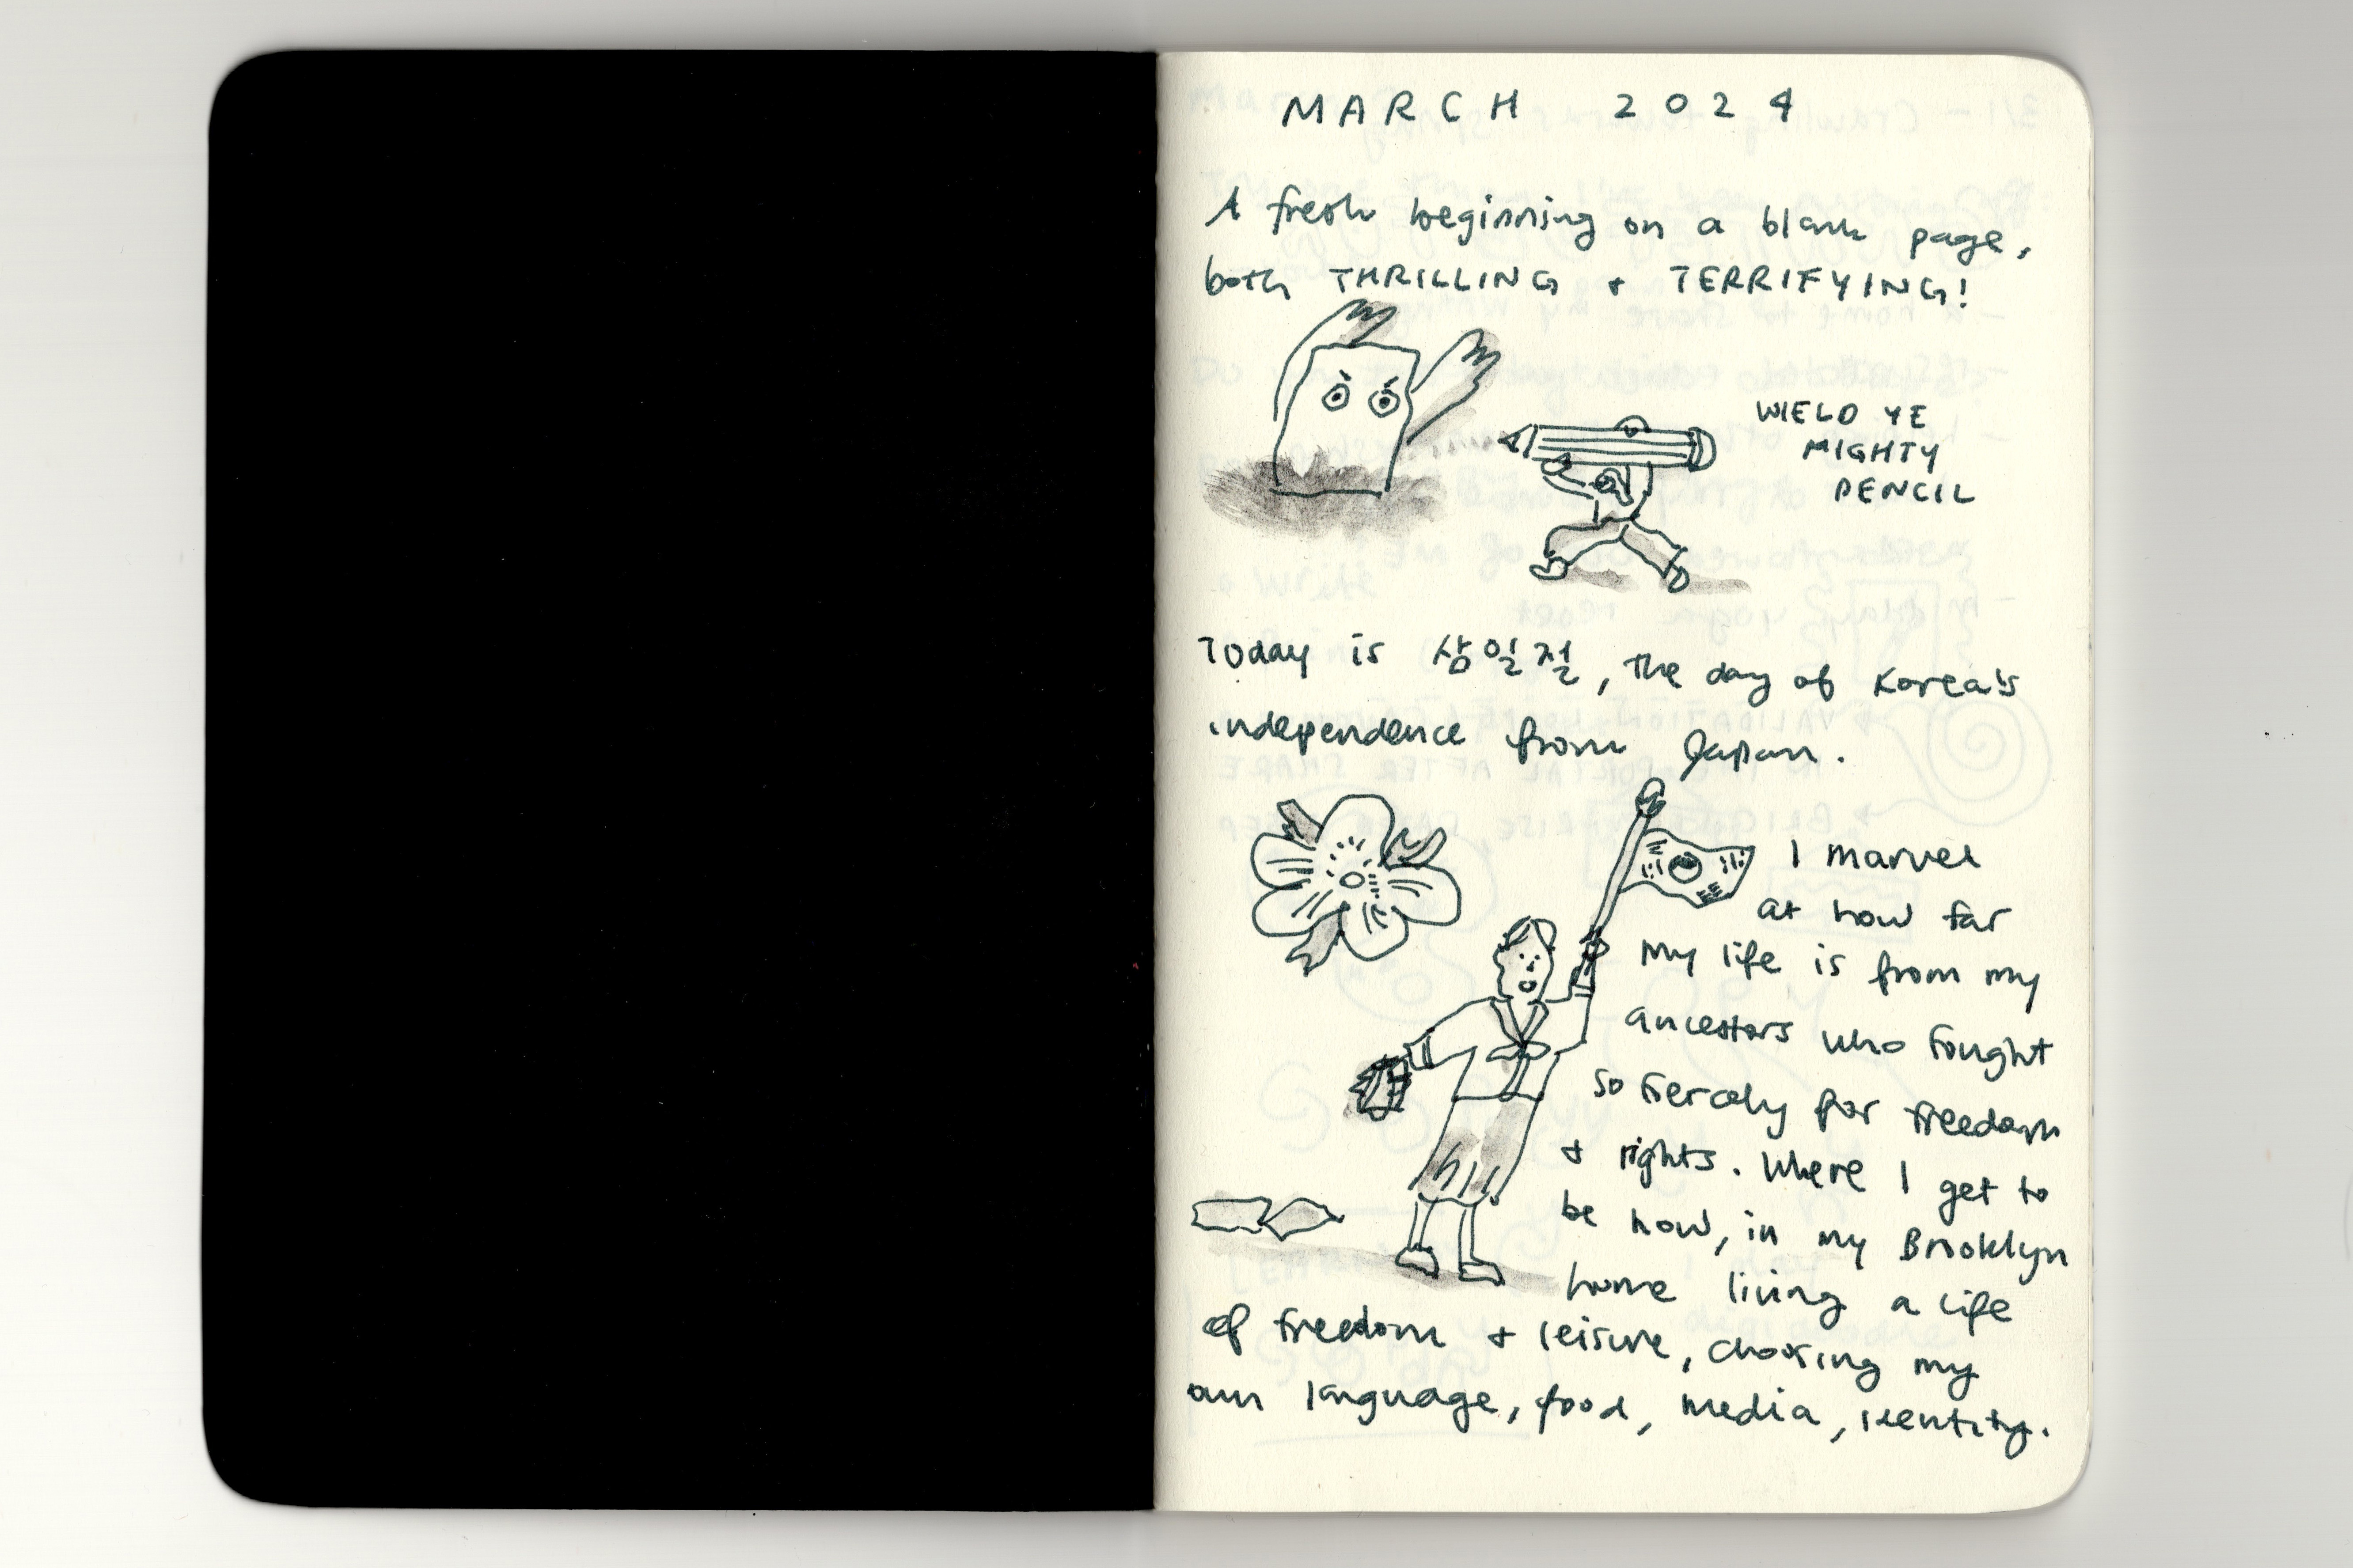 MARCH 2024
A fresh beginning on a blank page,
both THRILLING + TERRIFYING!
WIELD YE
MIGHTY
PENCIL
Today is 삼일절, the day of Korea's
independence from Japan.
I marvel
at how far
my life is from my
ancestors who fought
so fiercely for freedom
+ rights. Where I get to
be now, in my Brooklyn
home living a life
of freedom + leisure, choosing my
own language, food, media, identity.